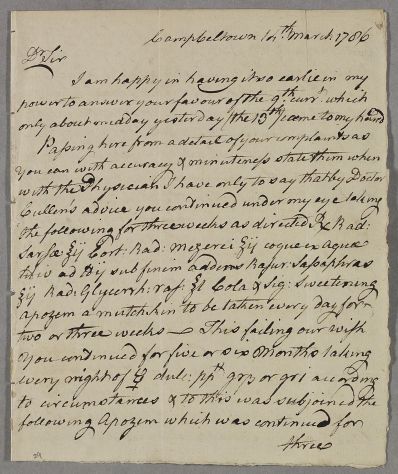 Campbeltown 14th March 1786
Dr Sir
I am happy in having it so early in my
power to answer your favour of the 9th curt which
only about midday yesterday (the 13th) came to my hand
Passing here from a detail of your complaints as
you can with accuracy & minuteness state them when
with the Physician I have only to say that by Doctor
Cullen's advice you continued under my eye taking
the following for three weeks as directed ℞ Rad:
Sarsæ ℥ij Cort: Rad: Mezerei ʒij coque in Aquæ
ad sub finem addens Rasur: Sassaphras
℥ij Rad: Glycyrrh: ras: Cola & Sig: Sweetening
Apozem a mutchkin to be taken every day for
two or three weeks — This failing our wish
you continued for five or six Months taking
every night of ☿ dulc: ppt gr or gr according
to circumstances & to this was subjoined the
following Apozem which was continued for
three